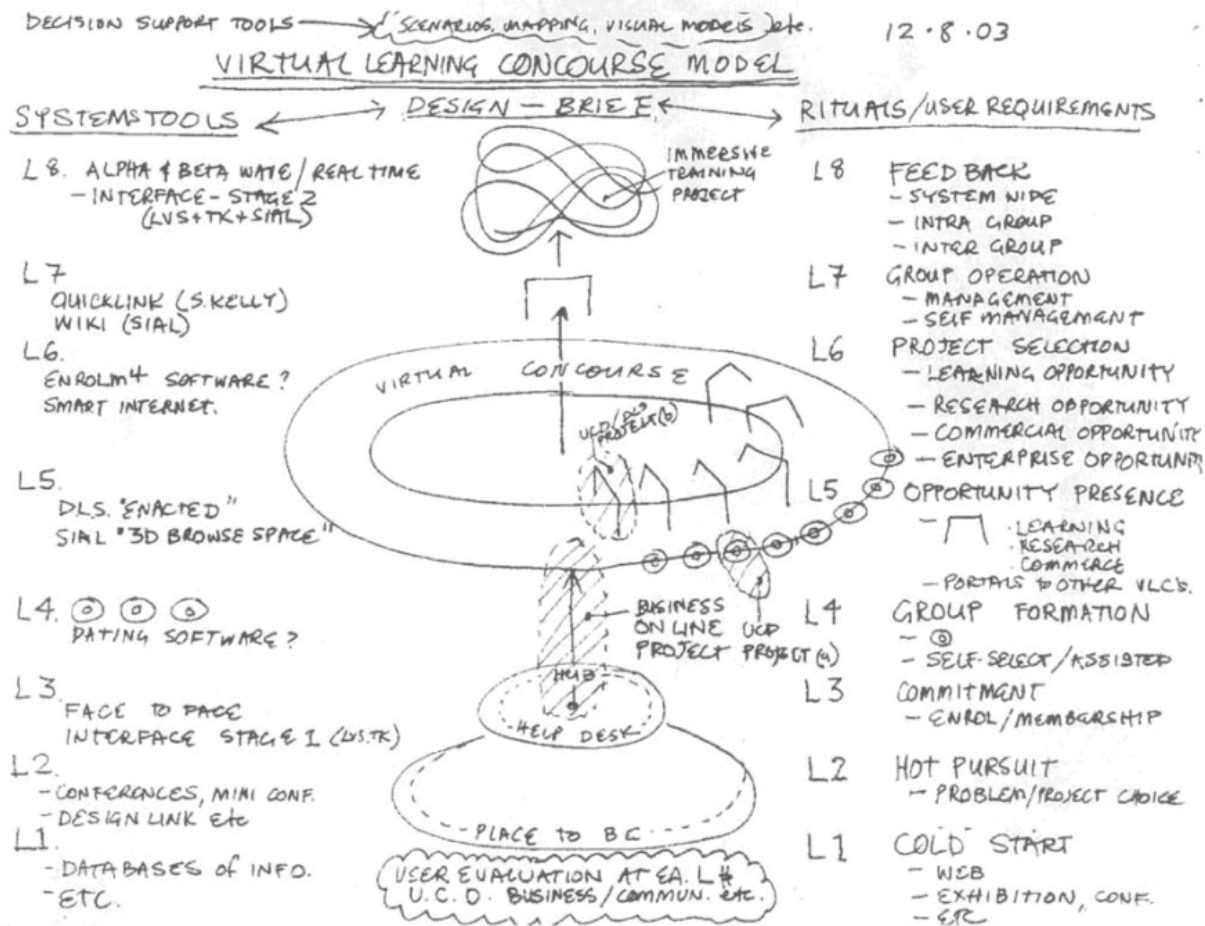 DECISION SUPPORT TOOLS → SCENARIOS, MAPPING, VISUAL MODELS etc. 12.8.03
VIRTUAL LEARNING CONCOURSE MODEL
SYSTEMS TOOLS DESIGN - BRIEF RITUALS/USER REQUIREMENTS
L8. ALPHA & BETA WAVE/REAL TIME
- INTERFACE - STAGE 2
(LVS+TK+SIAL)
L7
QUICKLINK (S.KELLY)
WIKI (SIAL)
L6.
ENROLM'T SOFTWARE?
SMART INTERNET.
L5.
DLS. "ENACTED"
SIAL "3D BROWSE SPACE"
L4.
DATING SOFTWARE?
L3.
FACE TO FACE
INTERFACE STAGE 1 (LVS.TK)
L2.
- CONFERENCES, MINI CONF.
- DESIGN LINK etc
L1.
- DATABASES of INFO.
- ETC.
IMMERSIVE
TRAINING
PROJECT
VIRTUAL CONCOURSE
UCD/DLS
PROJECT(b)
BUSINESS
ON LINE
PROJECT
UCD
PROJECT(a)
HUB
HELP DESK
PLACE TO BE
USER EVALUATION AT EA. L#
U.C.D. BUSINESS/COMMUN. etc.
L8 FEED BACK
- SYSTEM WIDE
- INTRA GROUP
- INTER GROUP
L7 GROUP OPERATION
- MANAGEMENT
- SELF MANAGEMENT
L6 PROJECT SELECTION
- LEARNING OPPORTUNITY
- RESEARCH OPPORTUNITY
- COMMERCIAL OPPORTUNITY
- ENTERPRISE OPPORTUNITY
L5 OPPORTUNITY PRESENCE
- . LEARNING
. RESEARCH
. COMMERCE
- PORTALS TO OTHER VLC'S.
L4 GROUP FORMATION
-
- SELF-SELECT/ASSISTED
L3 COMMITMENT
- ENROL/MEMBERSHIP
L2 HOT PURSUIT
- PROBLEM/PROJECT CHOICE
L1 COLD START
- WEB
- EXHIBITION, CONF.
- ETC